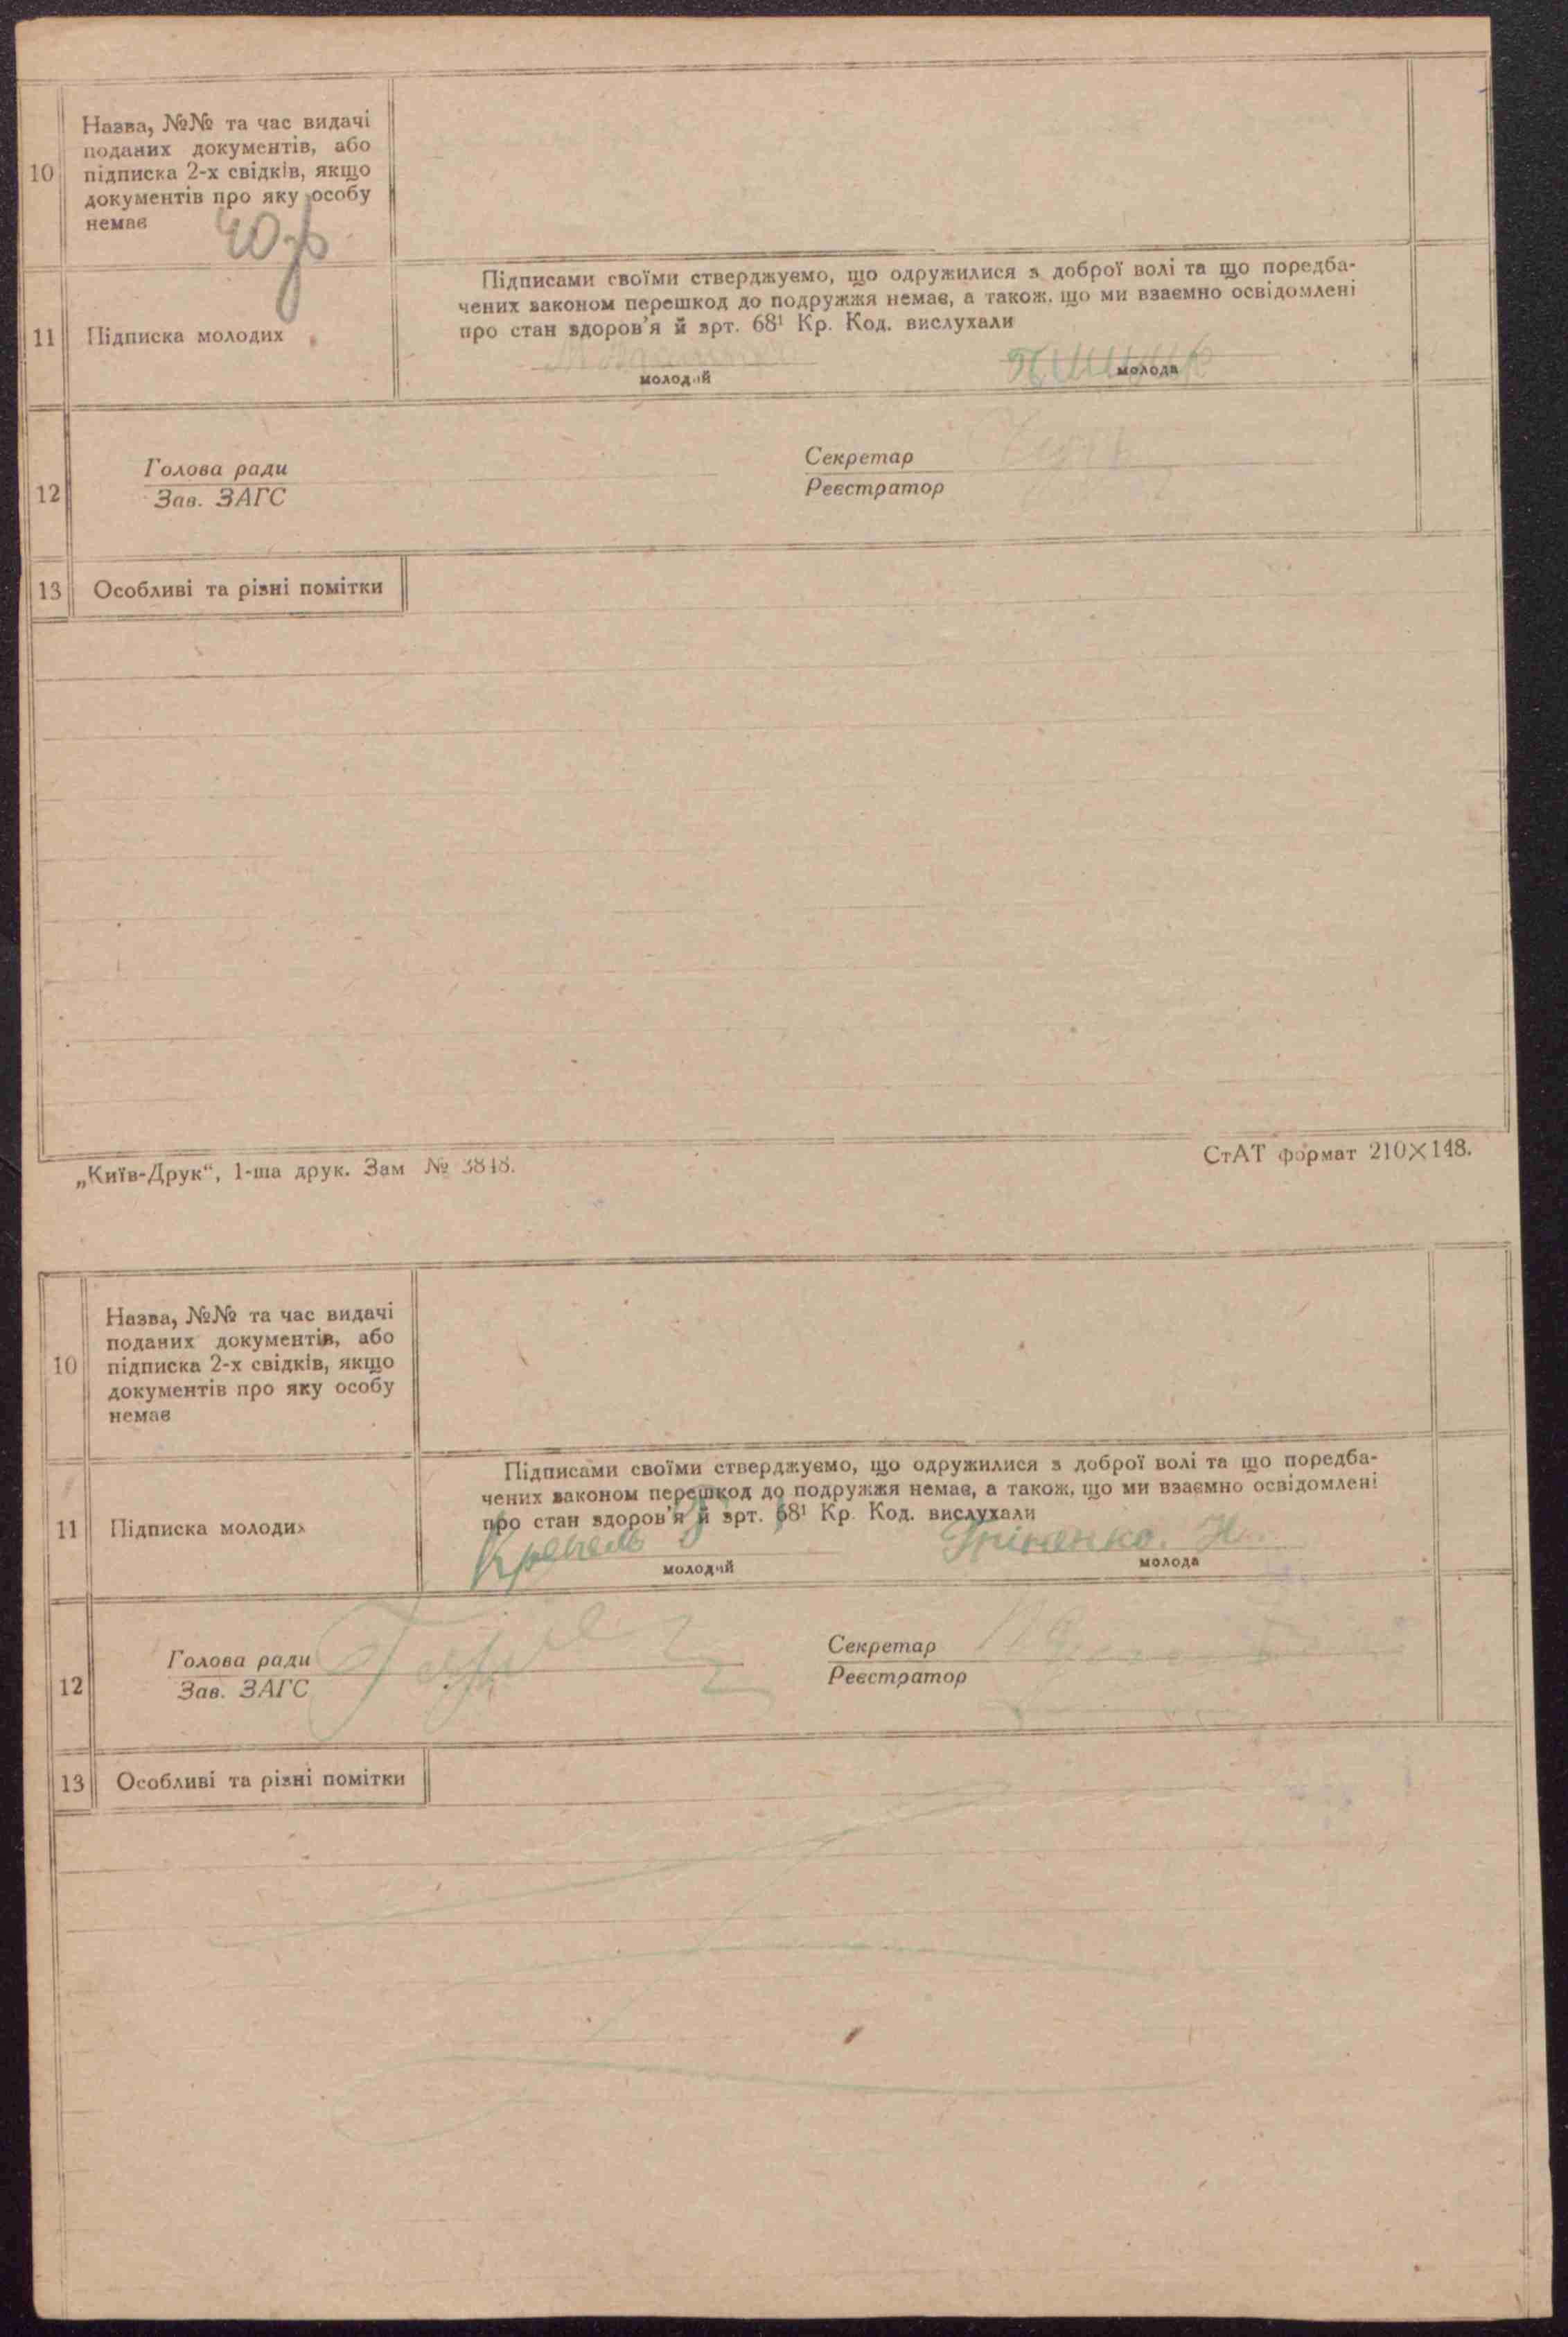 10
Назва, №№ та час видачі
поданих документів, або
підписка 2-х свідків, якщо
документів про яку особу
немає
11
Підписка молодих
Підписами своїми стверджуємо, що одружилися з доброї волі та що поредба-
чених законом перешкод до подружжя немає, а також, що ми взаємно освідомлені
про стан здоров'я й арт. 68¹ Кр. Код. вислухали
молодий
молода
12
Голова ради
Зав. ЗАГС
Секретар
Реєстратор
13
Особливі та різні помітки
„Київ-Друк“, 1-ша друк. Зам № 3848.
СтАТ формат 210×148.
10
Назва, №№ та час видачі
поданих документів, або
підписка 2-х свідків, якщо
документів про яку особу
немає
11
Підписка молодих
Підписами своїми стверджуємо, що одружилися з доброї волі та що поредба-
чених законом перешкод до подружжя немає, а також, що ми взаємно освідомлені
про стан здоров'я й арт. 68¹ Кр. Код. вислухали
молодий
молода
12
Голова ради
Зав. ЗАГС
Секретар
Реєстратор
13
Особливі та різні помітки